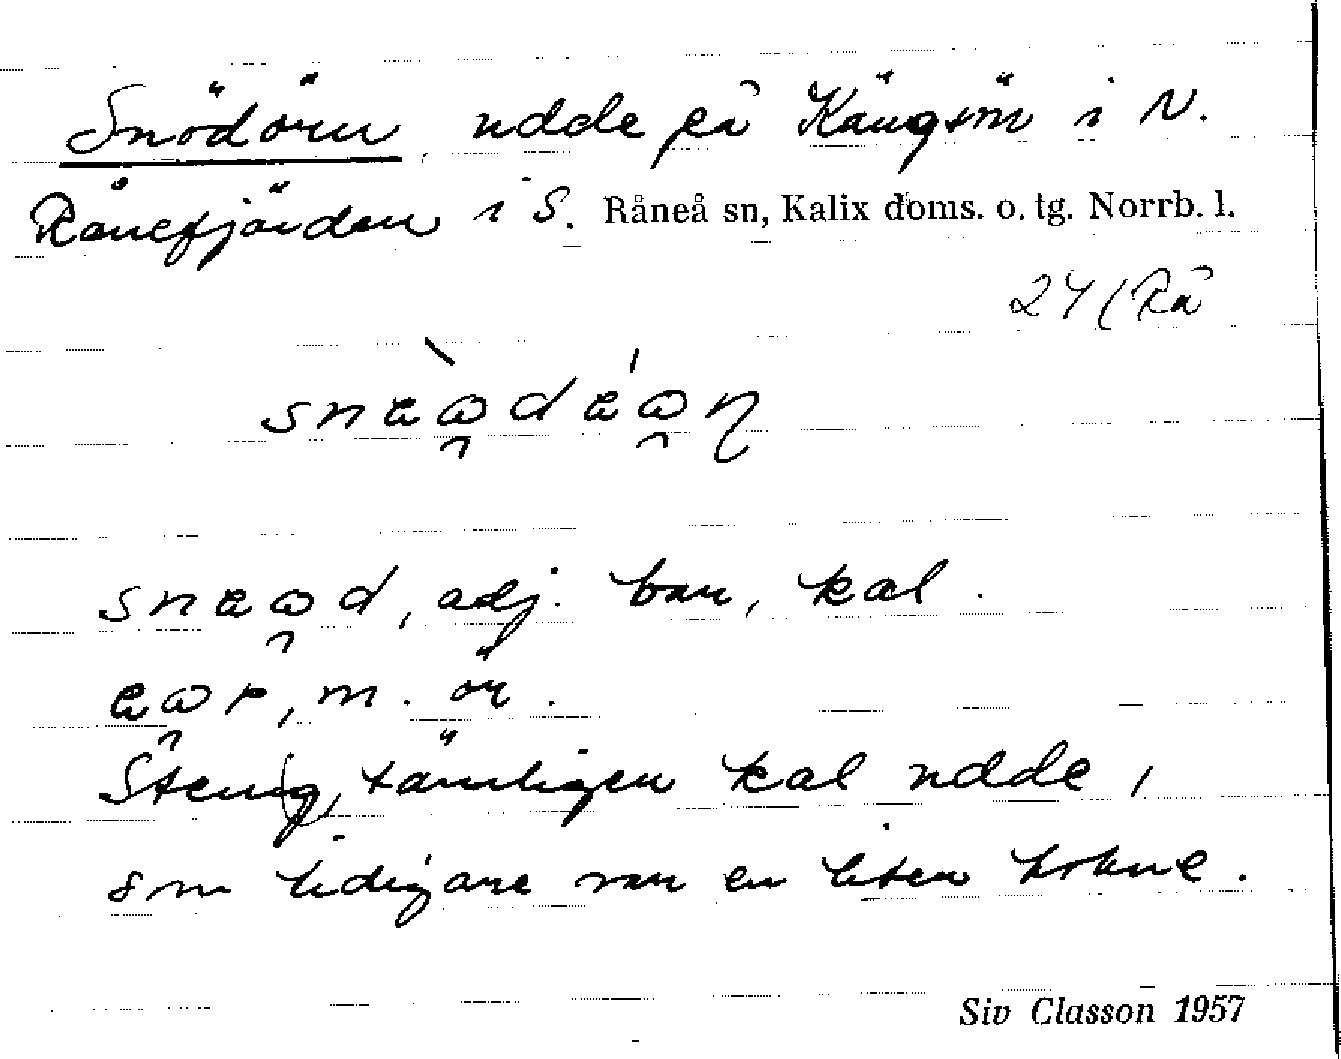 Snödörn, udde på Kängsön i N.
Rånefjärden i S. Råneå sn, Kalix doms. o. tg. Norrb. l.
24 (Rå
snɐ̀ɷdɐ́ɷn
snɐɷd, adj. bar, kal.
ɐɷr, m. ör.
Stenig, tämligen kal udde,
som tidigare var en liten holme.
Siv Classon 1957